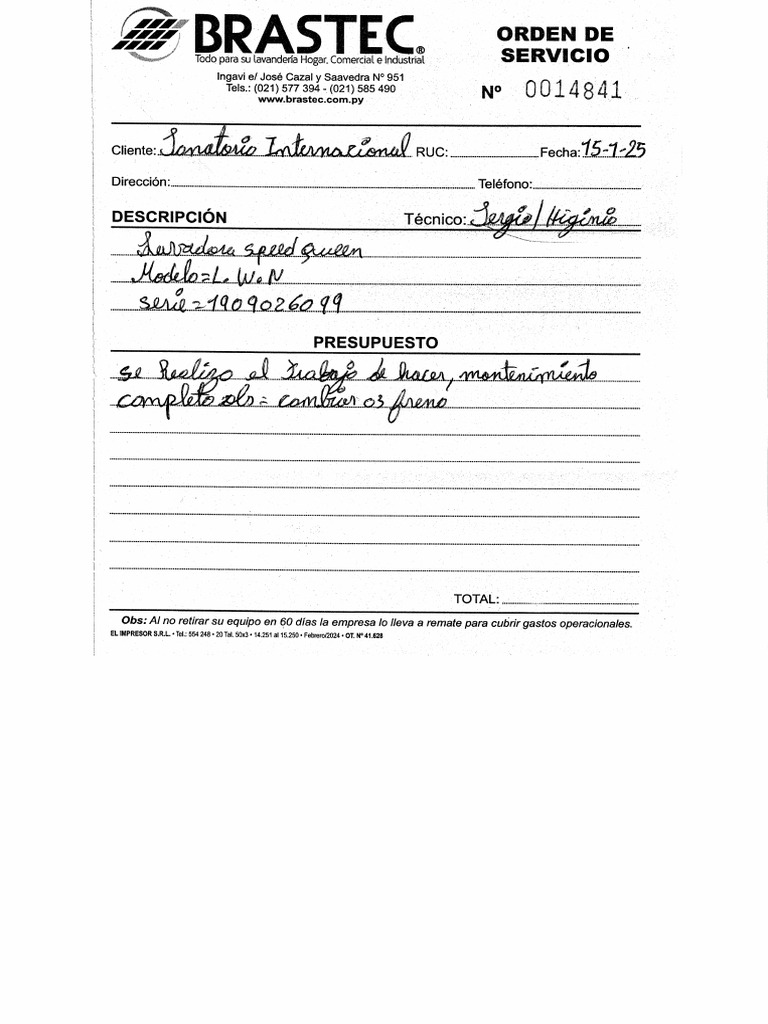 BRASTEC®
Todo para su lavandería Hogar, Comercial e Industrial
Ingavi e/ José Cazal y Saavedra Nº 951
Tels.: (021) 577 394 - (021) 585 490
www.brastec.com.py
ORDEN DE
SERVICIO
Nº 0014841
Cliente: Sanatorio Internacional RUC: Fecha: 15-1-25
Dirección: Teléfono:
DESCRIPCIÓN Técnico: Sergio/Higinio
Lavadora speed Queen
Modelo=L.W.N
serie=1909026099
PRESUPUESTO
se Realizo el trabajo de hacer, mantenimiento
completo obs= cambiar 03 freno
TOTAL:
Obs: Al no retirar su equipo en 60 días la empresa lo lleva a remate para cubrir gastos operacionales.
EL IMPRESOR S.R.L. • Tel.: 554 248 • 20 Tal. 50x3 • 14.251 al 15.250 • Febrero/2024 • OT. Nº 41.628